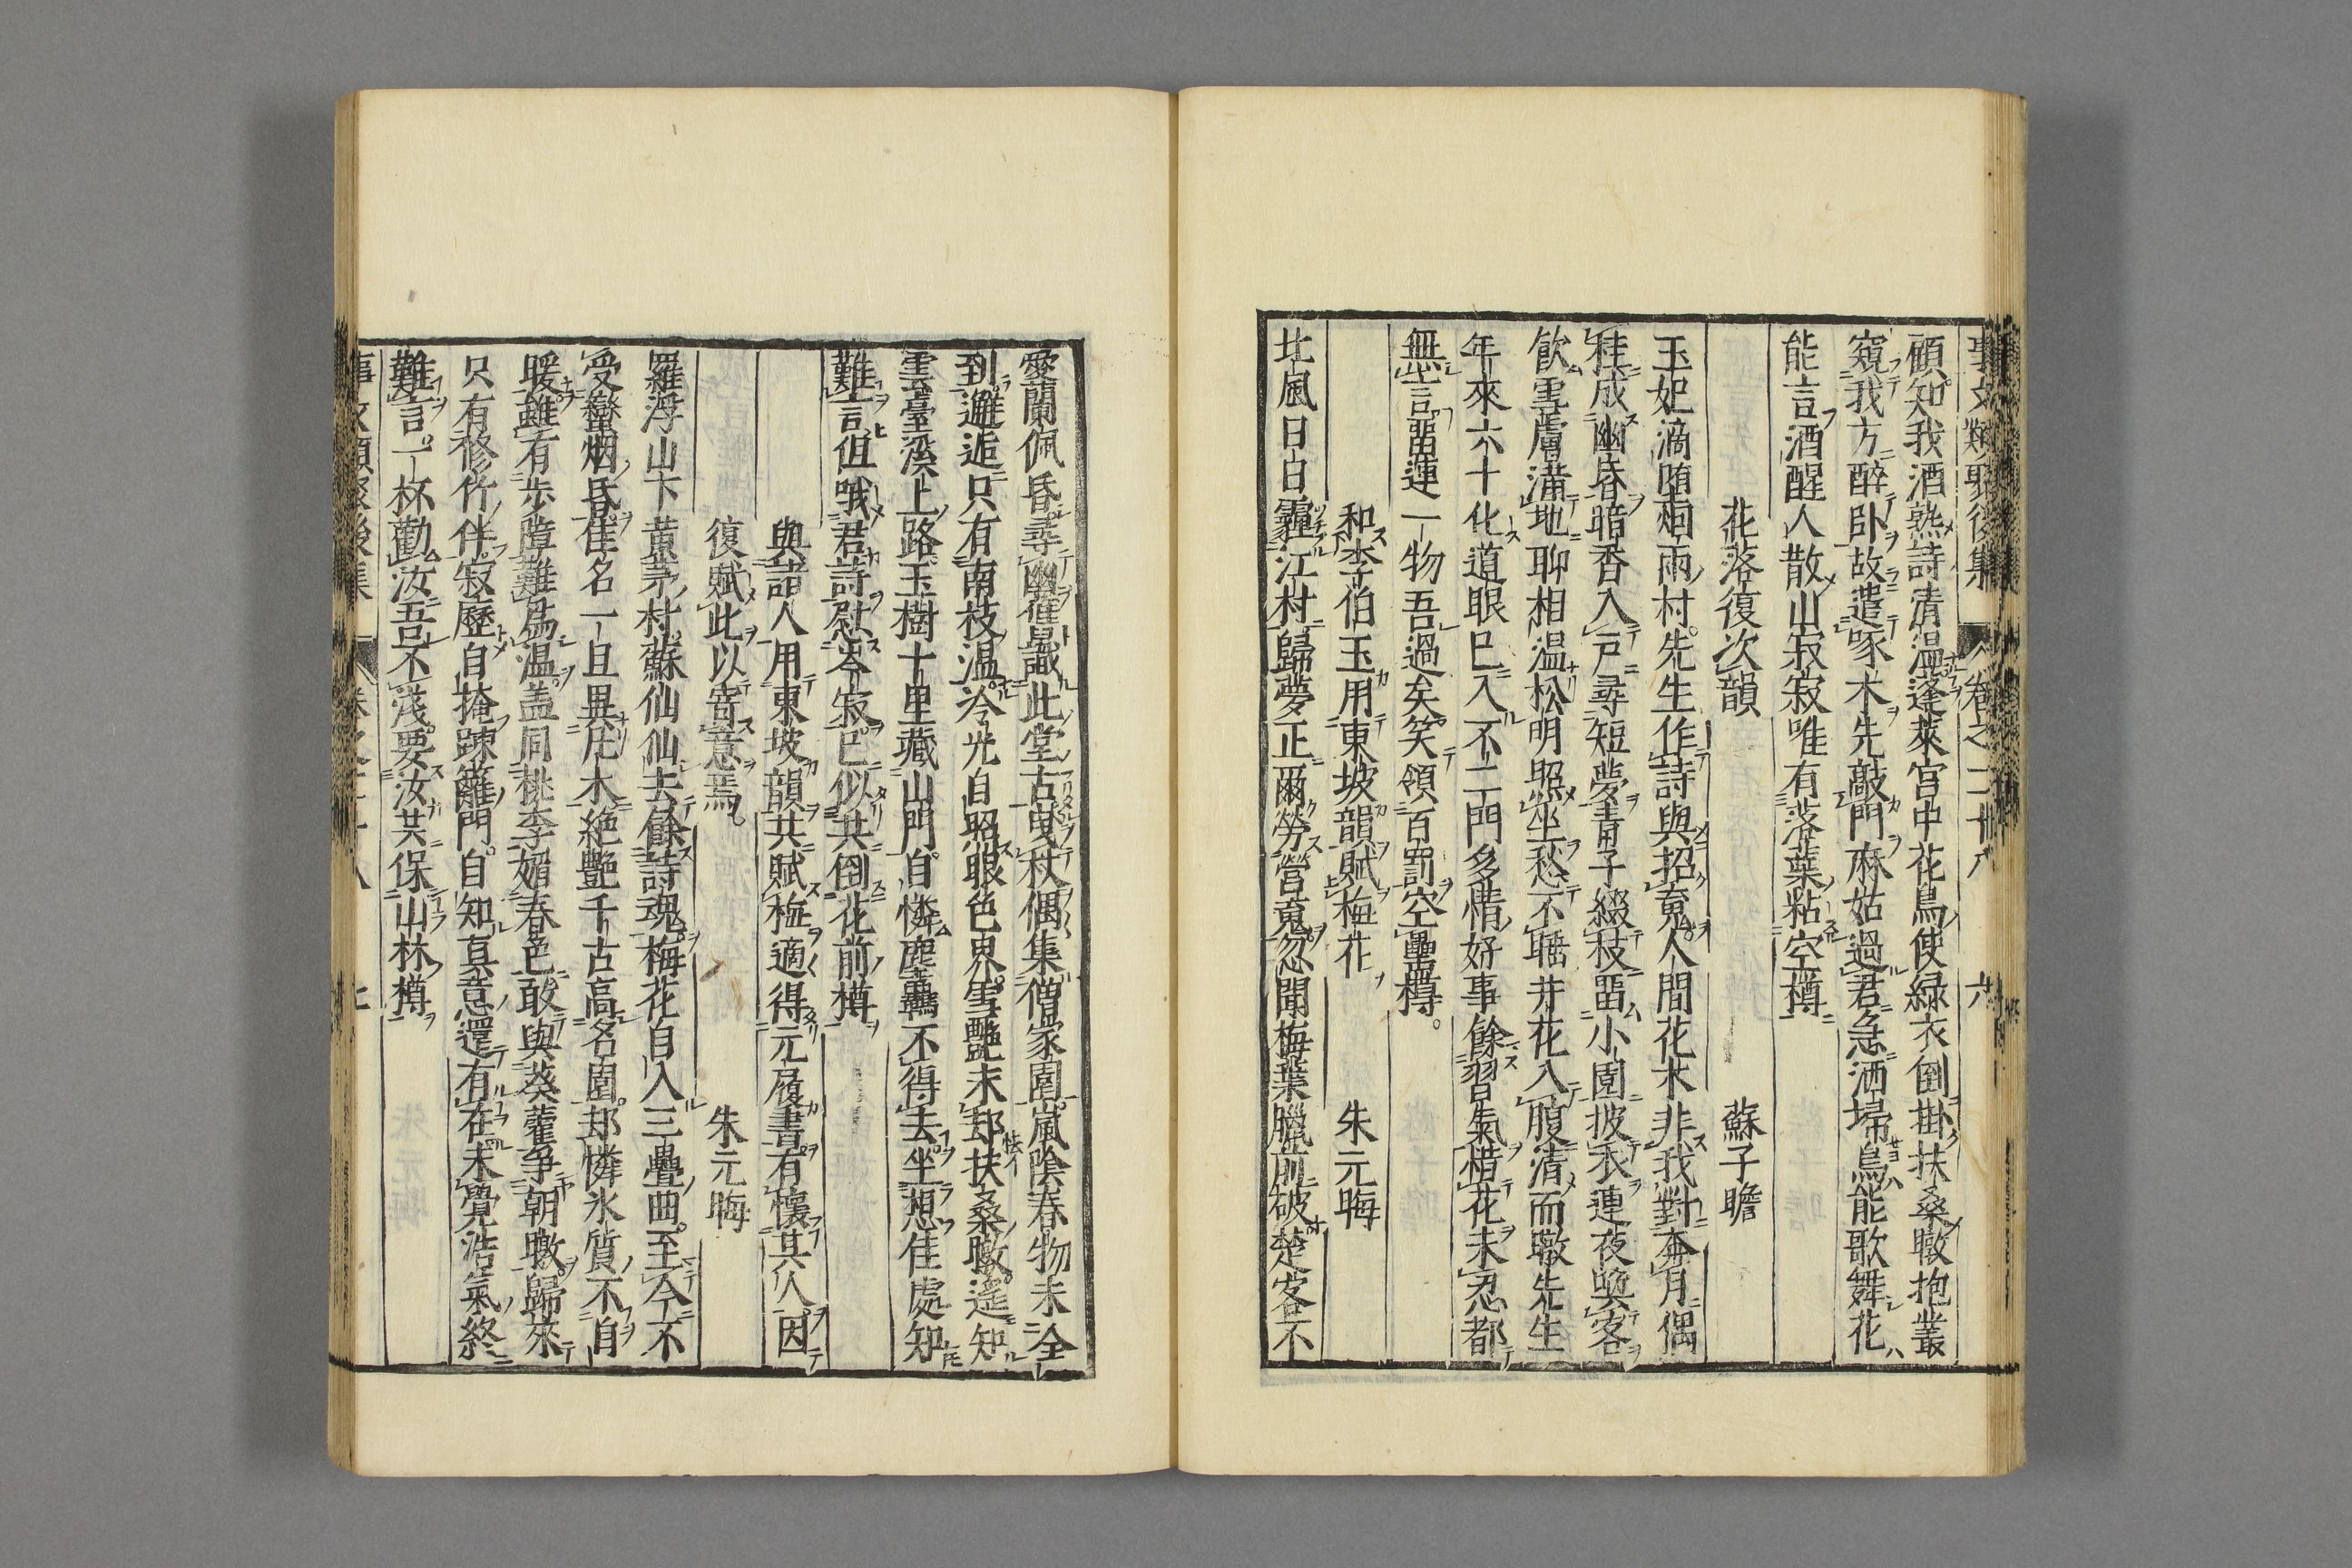 事文類聚後集 卷之二十八 六
顧知我酒熟詩清温蓬萊宮中花鳥使緑衣倒掛扶桑暾抱叢
窺我方醉卧故遣啄木先敲門麻姑過君急洒掃鳥能歌舞花
能言酒醒人散山寂寂唯有落葉粘空樽
花落復次韻 蘇子瞻
玉妃謫堕烟雨村先生作詩與招䰟人間花木非我對奔月偶
桂成幽昏暗香入戸尋短夢青子綴枝畱小園披衣連夜喚客
飲雪膚滿地聊相温松明照坐愁不睡井花入腹清而暾先生
年來六十化道眼已入不二門多情好事餘習氣惜花未忍都
無言畱連一物吾過矣笑領百罰空罍樽
和李伯玉用東坡韻賦梅花 朱元晦
北風日日霾江村歸夢正爾勞營䰟忽聞梅蘂臘前破楚客不
愛蘭佩昏尋幽催識此堂古曳杖偶集僧家園嵐陰春物未全
到邂逅只有南枝温冷光自照眼色界雪艶未却扶桑暾遥知
雲臺溪上路玉樹十里藏山門自憐塵羈不得去坐想佳處知
難言但哦君詩慰岑寂已似共倒花前樽
與諸人用東坡韻共賦梅適得元履書有懷其人因
復賦此以寄意焉 朱元晦
羅浮山下黄茅村蘇仙仙去餘詩魂梅花自入三疊曲至今不
受蠻烟昏佳名一旦異凡木絶艶千古高名園却憐氷質不自
暖雖有歩障難爲温盖同桃李媚春色敢與葵藿争朝暾歸來
只有修竹伴寂歷自掩踈籬門自知真意還有在未覺浩氣終
難言一杯勸汝吾不淺要汝共保山林樽